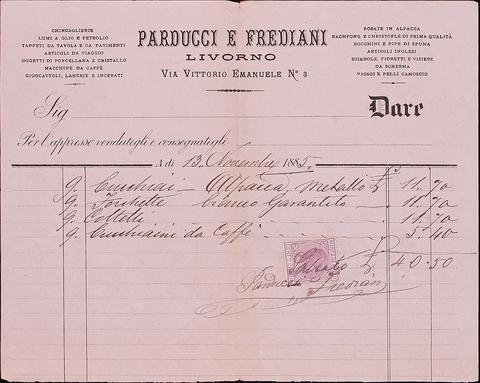 CHINCAGLIERIE
LUMI A OLIO E PETROLIO
TAPPETI DA TAVOLA E DA PAVIMENTI
ARTICOLI DA VIAGGIO
OGGETTI DI PORCELLANA E CRISTALLO
MACCHINE DA CAFFÈ
GIUOCATTOLI, LANERIE E INCERATI
PARDUCCI E FREDIANI
LIVORNO
VIA VITTORIO EMANUELE N° 3
POSATE IN ALPACCA
PACKFONG E CHRISTOFLE DI PRIMA QUALITÀ
BOCCHINI E PIPE DI SPUMA
ARTICOLI INGLESI
SCIABOLE, FIORETTI E VISIERE
DA SCHERMA
VASSOI E PELLI CAMOSCIO
Sig Dare
Per l'appresso vendutegli e consegnategli
A dì 13 Novembre 1885.
9. Cucchiai Alpacca, Metallo £ 11.70
9. Forchette bianco Garantito 11.70
9. Coltelli 11.70
9. Cucchiaini da Caffè 5.40
Saldato £ 40.50
Parducci Frediani